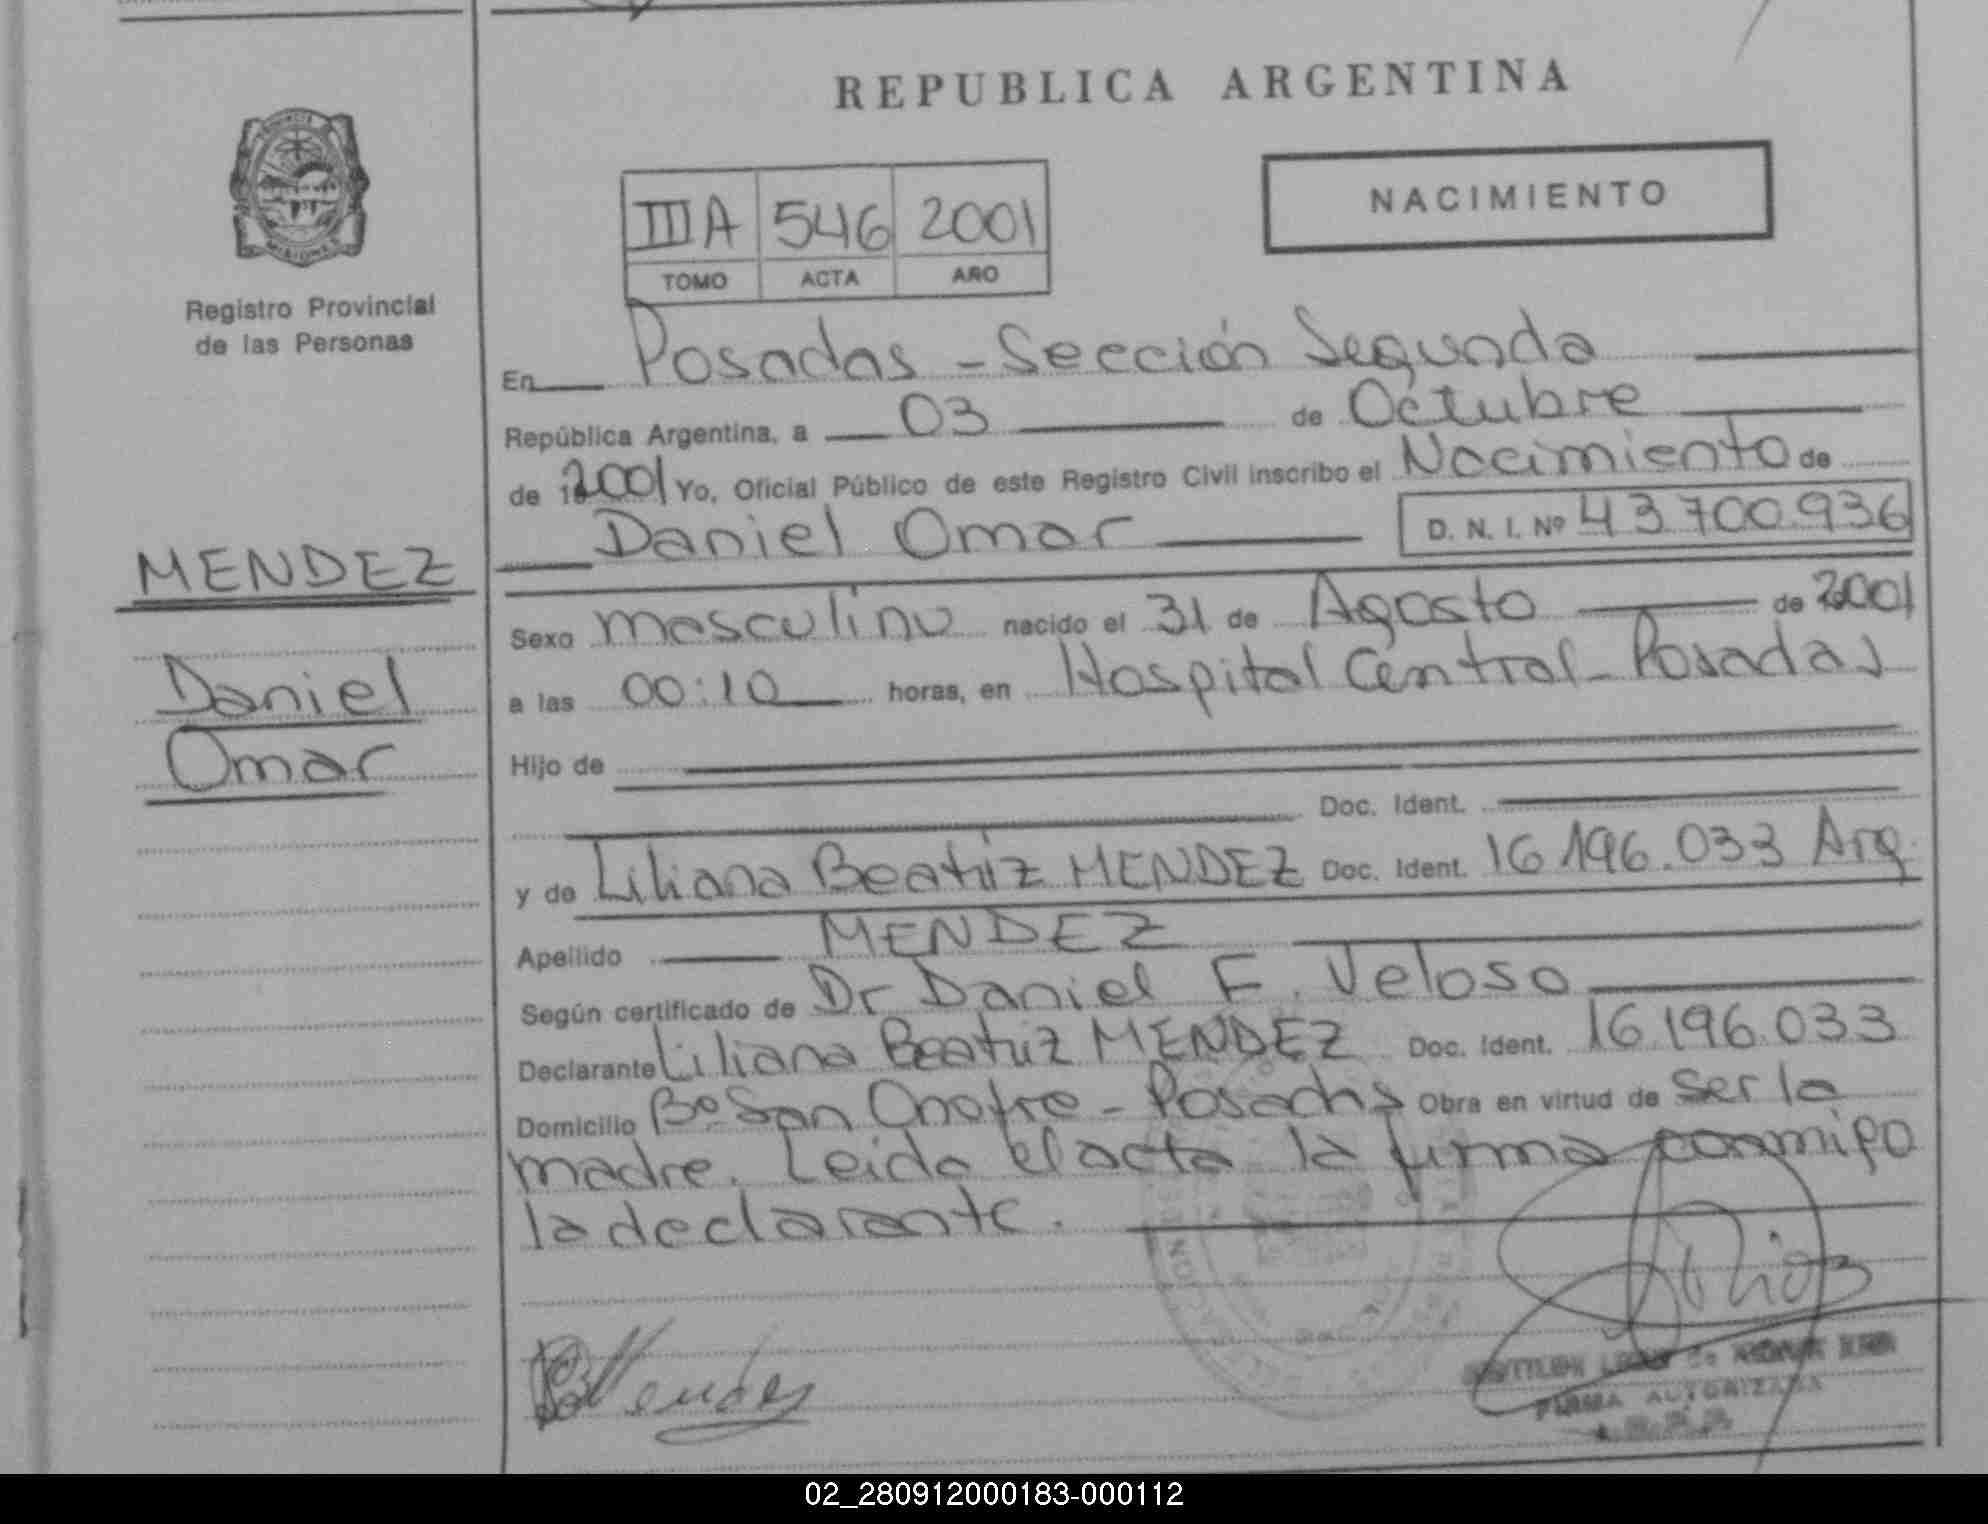 REPUBLICA ARGENTINA
PROVINCIA
MISIONES
Registro Provincial
de las Personas
IIIA 546 2001
TOMO ACTA AÑO
NACIMIENTO
En Posadas - Sección Segunda
República Argentina, a 03 de Octubre
de 2001 Yo, Oficial Público de este Registro Civil inscribo el Nacimiento de
Daniel Omar D. N. I. Nº 43.700.936
MENDEZ
Daniel
Omar
Sexo masculino nacido el 31 de Agosto de 2001
a las 00:10 horas, en Hospital Central - Posadas
Hijo de
Doc. Ident.
y de Liliana Beatriz MENDEZ Doc. Ident. 16.196.033 Arg.
Apellido MENDEZ
Según certificado de Dr Daniel F. Veloso
Declarante Liliana Beatriz MENDEZ Doc. Ident. 16.196.033
Domicilio Bº San Onofre - Posadas Obra en virtud de ser la
madre. Leida el acta la firma conmigo
la declarante.
Mendez
FIRMA AUTORIZADA
02_280912000183-000112